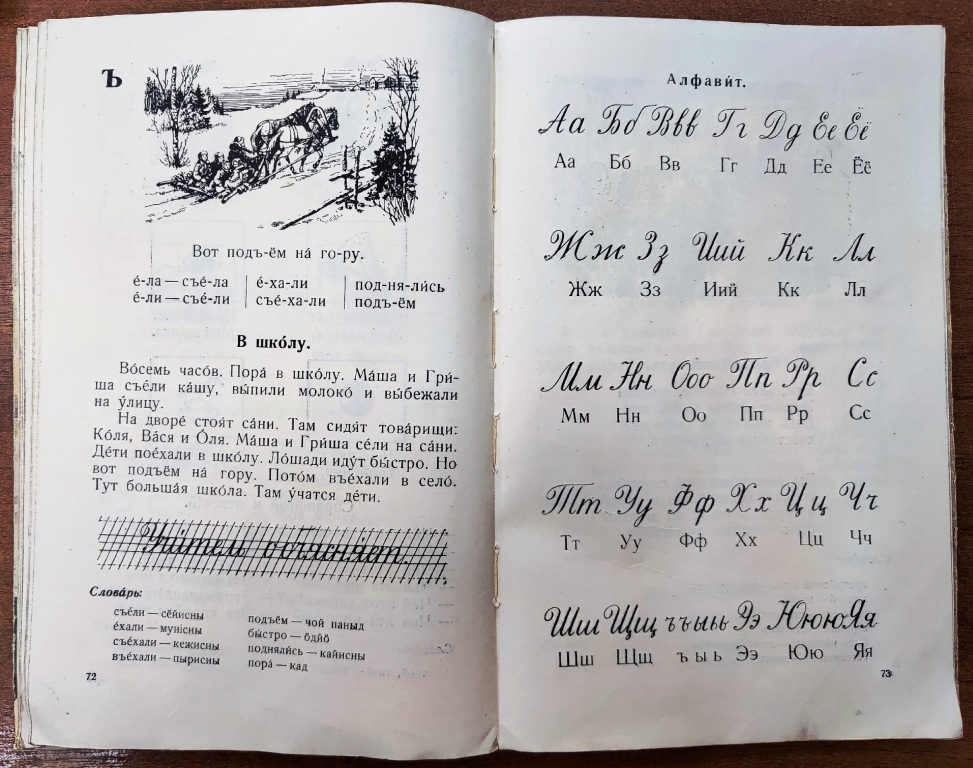 Ъ
Вот подъ-ём на́ го-ру.
е́-ла — съе́-ла
е́-ли — съе́-ли
е́-ха-ли
съе́-ха-ли
под-ня-ли́сь
подъ-ём
В шко́лу.
Во́семь часо́в. Пора́ в шко́лу. Ма́ша и Гри́-
ша съе́ли ка́шу, вы́пили молоко́ и вы́бежали
на у́лицу.
На дворе́ стоя́т са́ни. Там сидя́т това́рищи:
Ко́ля, Ва́ся и О́ля. Ма́ша и Гри́ша се́ли на са́ни.
Де́ти пое́хали в шко́лу. Ло́шади иду́т бы́стро. Но
вот подъём на́ гору. Пото́м въе́хали в село́.
Тут больша́я шко́ла. Там у́чатся де́ти.
Учи́тель объясня́ет.
Слова́рь:
съе́ли — сёйисны
е́хали — муні́сны
съе́хали — кежисны
въе́хали — пырисны
подъём — чой паныд
бы́стро — ӧдйӧ
подняли́сь — кайисны
пора́ — кад
72
Алфави́т.
Аа Бб Ввв Гг Дд Ее Ёё
Аа Бб Вв Гг Дд Ее Ёё
Жж Зз Иий Кк Лл
Жж Зз Иий Кк Лл
Мм Нн Ооо Пп Рр Сс
Мм Нн Оо Пп Рр Сс
Тт Уу Фф Хх Цц Чч
Тт Уу Фф Хх Цц Чч
Шш Щщ ъъыьь Ээ Ююю Яя
Шш Щщ ъ ы ь Ээ Юю Яя
73